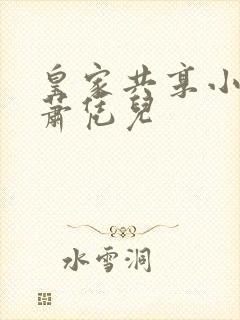 皇家共享小
萧恁兒
水雪洞